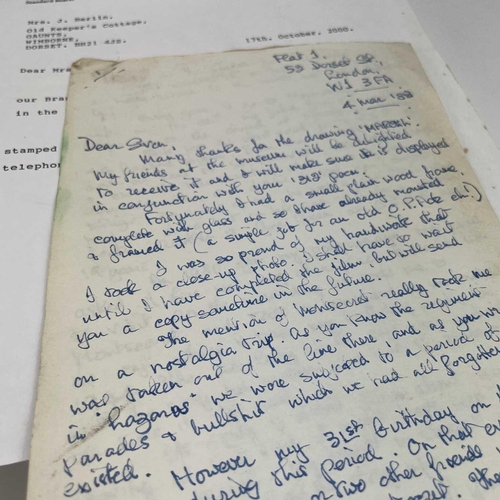 Mrs. J. Bartle,
Old Keeper's Cottage,
GAUNTS,
WIMBORNE,
DORSET. BH21 4JS.
17th. October, 2000.
Dear Mrs
our Bran
in the
stamped
telephon
Flat 1,
55 Dorset St,
London,
W1 3FA
4 Mar '88
Dear Sven,
Many thanks for the drawing
My friends at the museum will be delighted
to receive it and I will make sure it is displayed
in conjunction with your '31st' poem.
Fortunately I had a small plain wood frame
complete with glass and so I have already mounted
& framed it (a simple job for an old O.P. Pete eh!)
I was so proud of my handiwork that
I took a close-up photo. I shall have to wait
until I have completed the film, but will send
you a copy sometime in the future.
The mention of Honsecret really took me
on a nostalgia trip. As you know the regiment
was taken out of the line there, and as you wr
in 'Lazarus' we were subjected to a period of
parades & bullshit which we had all forgotten
existed. However my 31st Birthday on
during this period. On that
two other friends